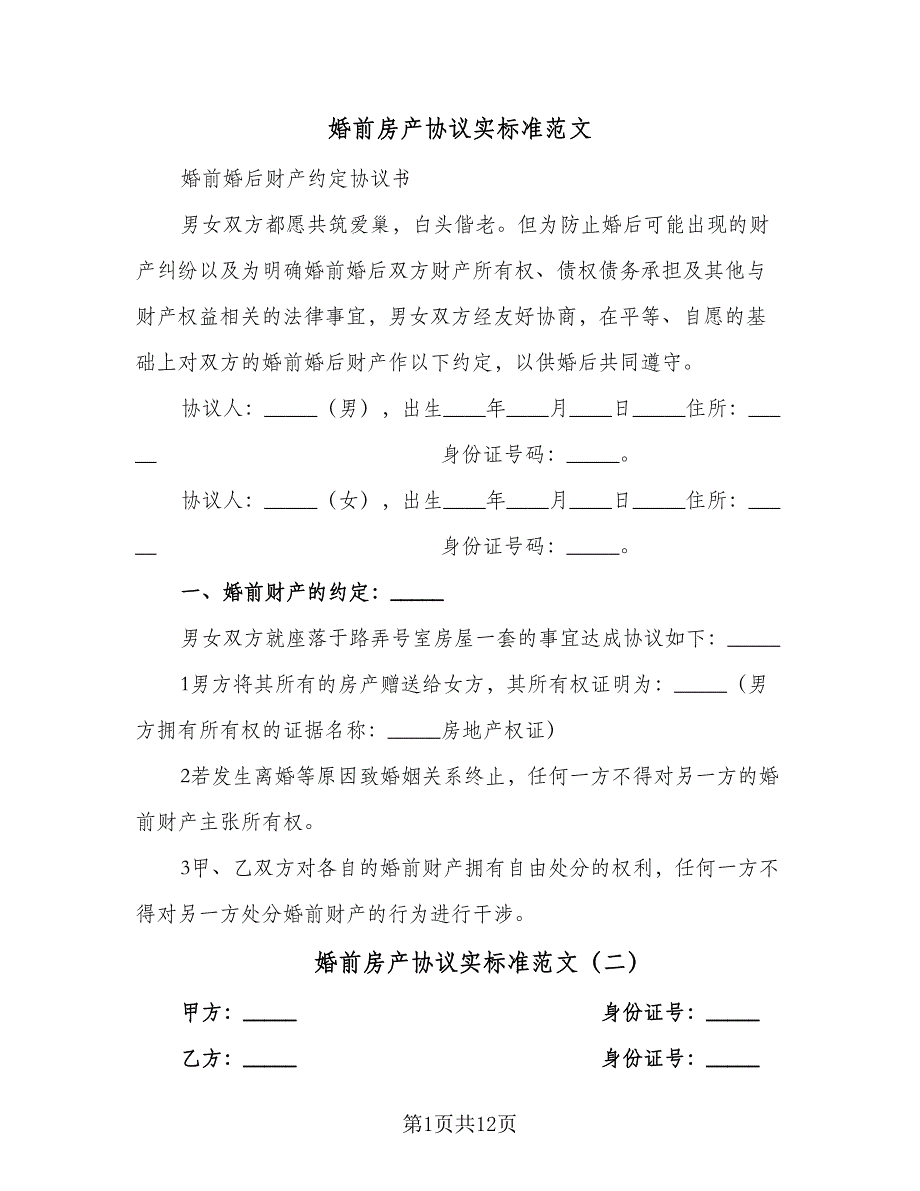 婚前房产协议实标准范文
婚前婚后财产约定协议书
男女双方都愿共筑爱巢，白头偕老。但为防止婚后可能出现的财
产纠纷以及为明确婚前婚后双方财产所有权、债权债务承担及其他与
财产权益相关的法律事宜，男女双方经友好协商，在平等、自愿的基
础上对双方的婚前婚后财产作以下约定，以供婚后共同遵守。
协议人：_____（男），出生____年____月____日_____住所：___
__ 身份证号码：_____。
协议人：_____（女），出生____年____月____日_____住所：___
__ 身份证号码：_____。
一、婚前财产的约定：_____
男女双方就座落于路弄号室房屋一套的事宜达成协议如下：_____
1男方将其所有的房产赠送给女方，其所有权证明为：_____（男
方拥有所有权的证据名称：_____房地产权证）
2若发生离婚等原因致婚姻关系终止，任何一方不得对另一方的婚
前财产主张所有权。
3甲、乙双方对各自的婚前财产拥有自由处分的权利，任何一方不
得对另一方处分婚前财产的行为进行干涉。
婚前房产协议实标准范文（二）
甲方：_____ 身份证号：_____
乙方：_____ 身份证号：_____
第1页共12页